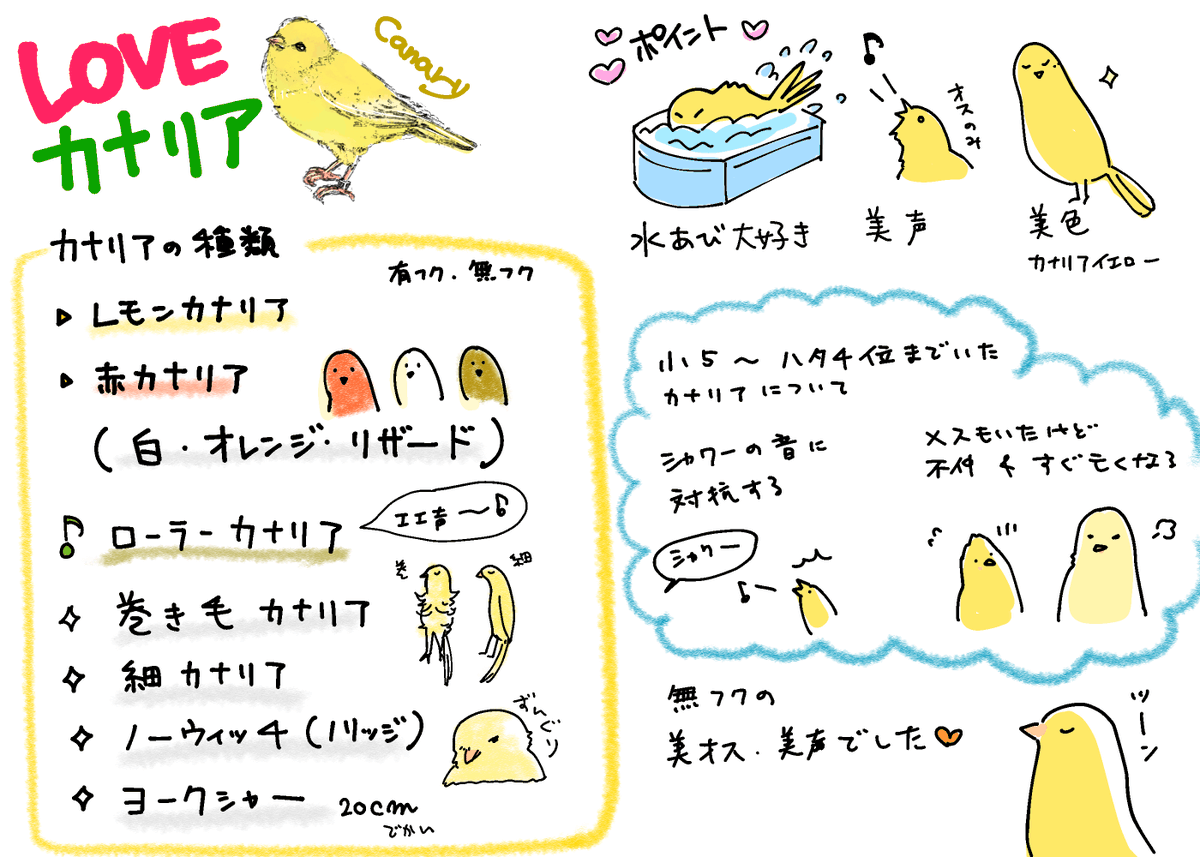 LOVE
カナリア
Canary
カナリアの種類
有フク・無フク
レモンカナリア
赤カナリア
(白・オレンジ・リザード)
ローラーカナリア
エエ声〜♪
巻き毛カナリア
巻
細
細カナリア
ノーウィッチ(ノリッジ)
ずんぐり
ヨークシャー
20cm
でかい
ポイント
水あび大好き
オスのみ
美声
美色
カナリアイエロー
小5〜ハタチ位までいた
カナリアについて
シャワーの音に
対抗する
シャワー
メスもいたけど
すぐ亡くなる
無フクの
美オス・美声でした
ツーン